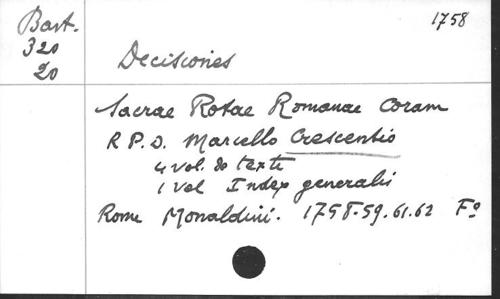 Bart.
320
20
1758
Decisiones
Sacrae Rotae Romanae Coram
R P. D. Marcello Crescentio
4 vol. de texte
1 vol Index generalis
Rome Monaldini. 1758.59.61.62 Fº